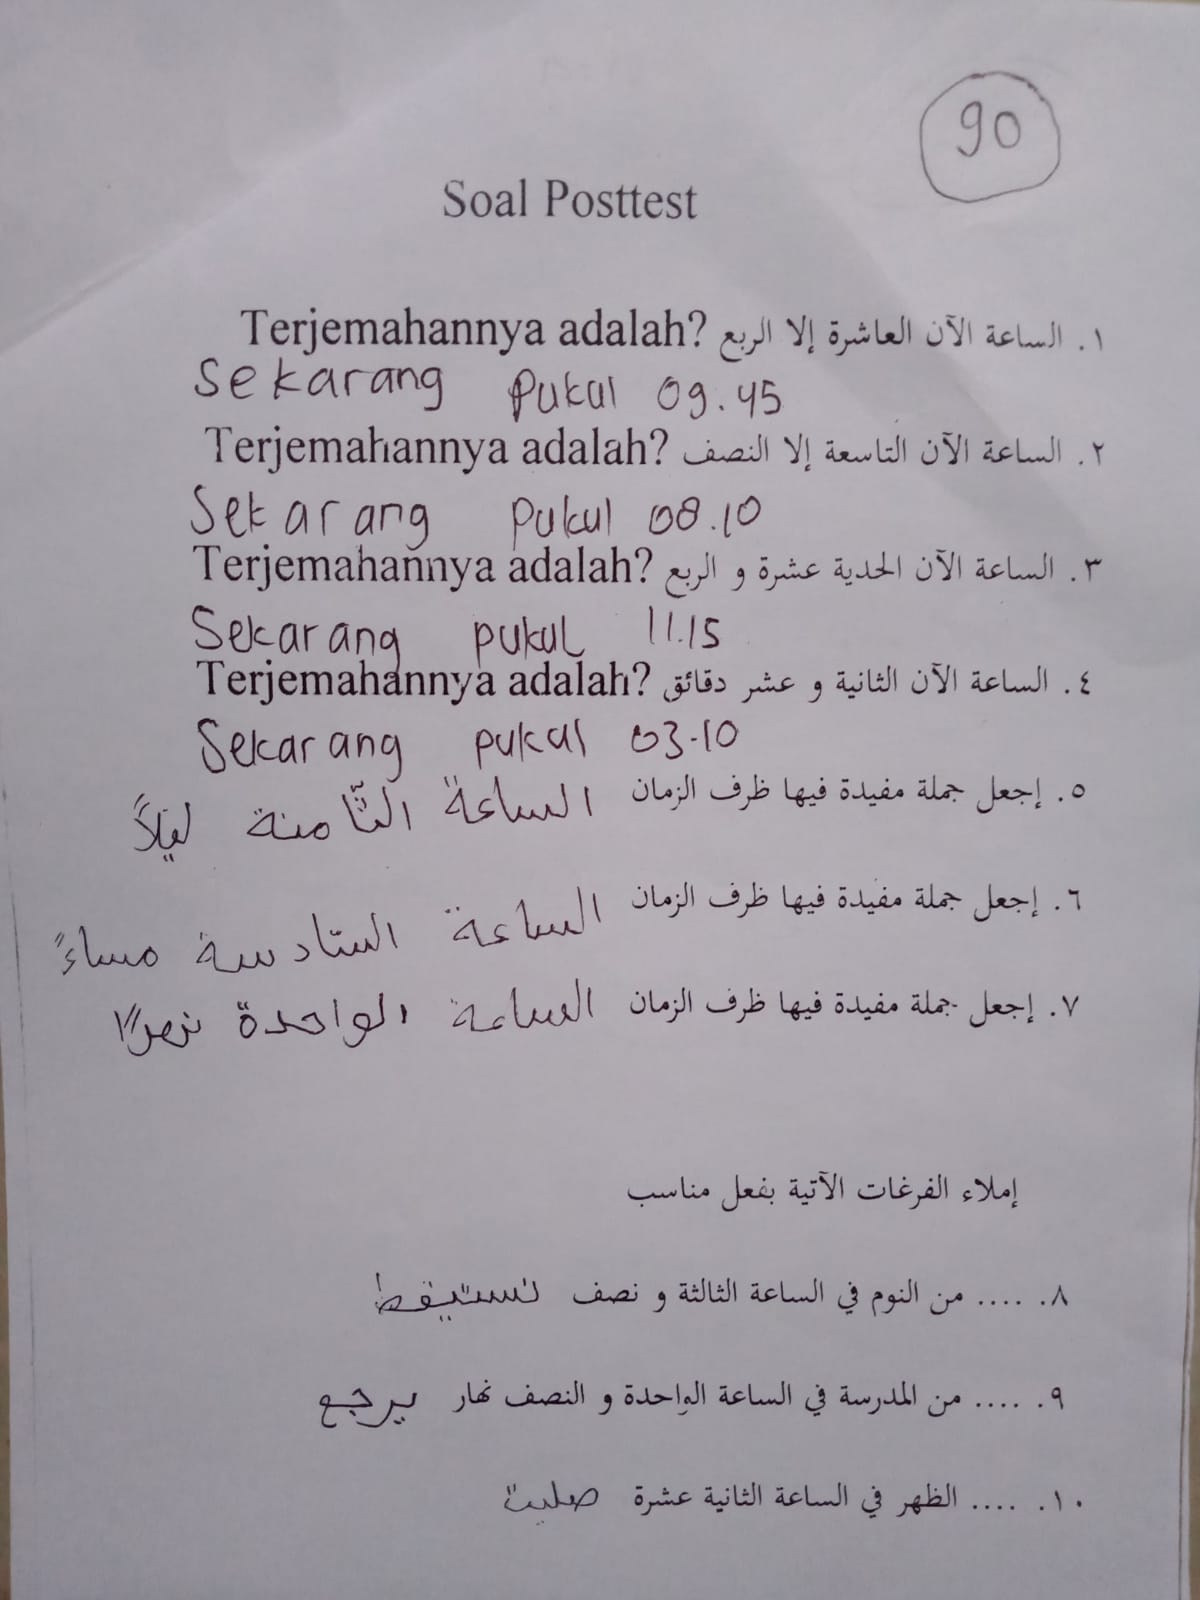 90
Soal Posttest
١. الساعة الآن العاشرة إلا الربع Terjemahannya adalah?
Sekarang Pukul 09.45
٢. الساعة الآن التاسعة إلا النصف Terjemahannya adalah?
Sekarang Pukul 08.10
٣. الساعة الآن الحدية عشرة و الربع Terjemahannya adalah?
Sekarang pukul 11.15
٤. الساعة الآن الثانية و عشر دقائق Terjemahannya adalah?
Sekarang pukul 03.10
٥. إجعل جملة مفيدة فيها ظرف الزمان الساعة الثّامنة ليلاً
٦. إجعل جملة مفيدة فيها ظرف الزمان الساعة السّادسة مساءً
٧. إجعل جملة مفيدة فيها ظرف الزمان الساعة الواحدة
إملاء الفرغات الآتية بفعل مناسب
٨. .... من النوم في الساعة الثالثة و نصف تستيقط
٩. .... من المدرسة في الساعة الواحدة و النصف نهار يرجع
١٠. .... الظهر في الساعة الثانية عشرة صليت